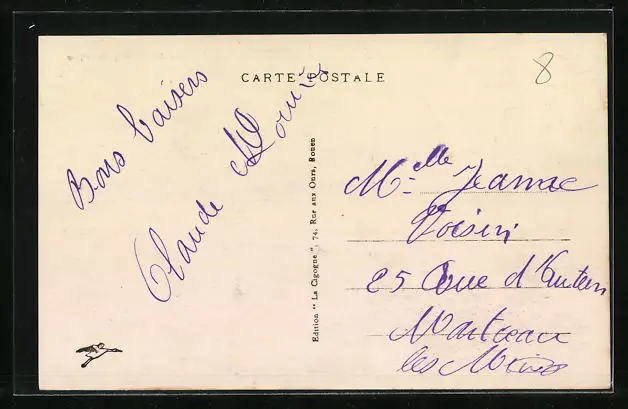 CARTE POSTALE
8
Bons baisers
Claude Louis
Edition " La Cigogne ", 74, Rue aux Ours, Rouen
Melle Jeanne
Voisin
25 Rue d'Autun
Montceau
les Mines